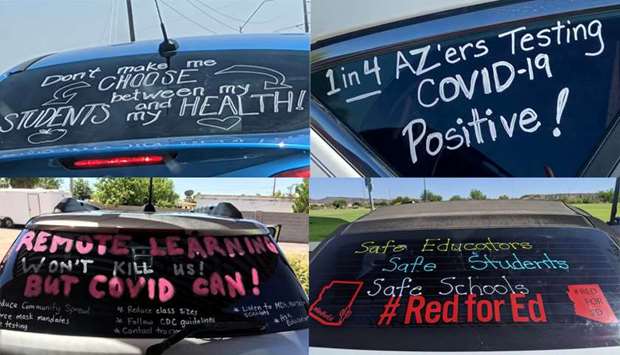 Don't make me
CHOOSE
between my
STUDENTS and my HEALTH!
1 in 4 AZ'ers Testing
COVID-19
Positive!
REMOTE LEARNING
WON'T KILL US!
BUT COVID CAN!
Reduce Community Spread
mask mandates
testing
• Reduce class sizes
• Follow CDC guidelines
• Contact
• Listen to
Safe Educators
Safe Students
Safe Schools
#Red for Ed
#RED
FOR
ED